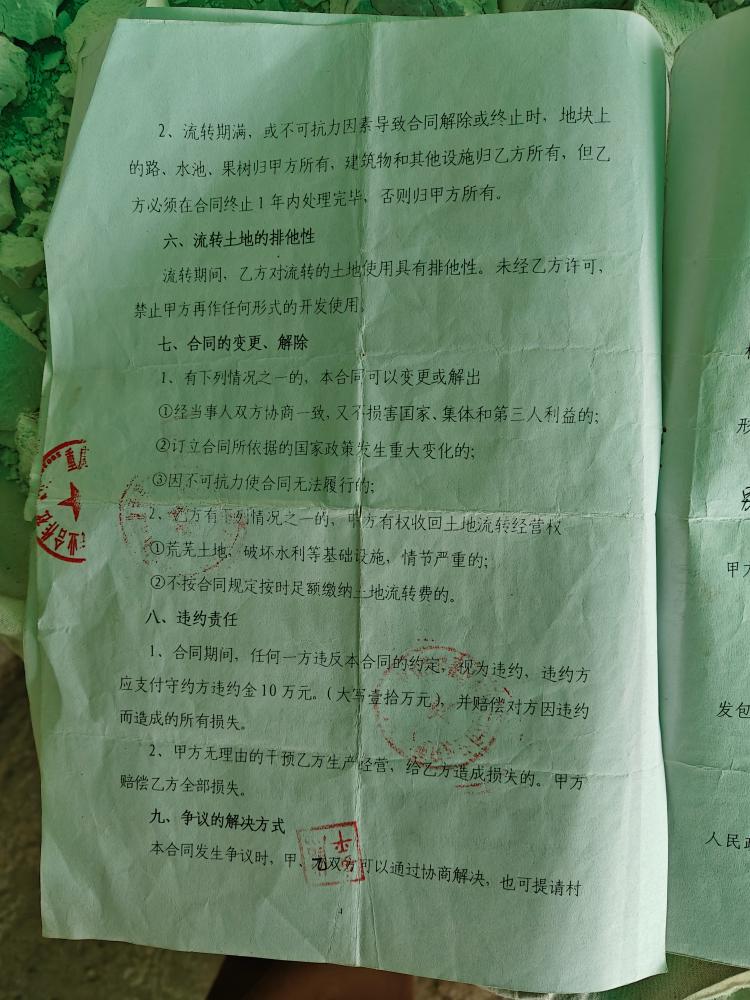 2、流转期满，或不可抗力因素导致合同解除或终止时，地块上
的路、水池、果树归甲方所有，建筑物和其他设施归乙方所有，但乙
方必须在合同终止1年内处理完毕，否则归甲方所有。
六、流转土地的排他性
流转期间，乙方对流转的土地使用具有排他性。未经乙方许可，
禁止甲方再作任何形式的开发使用。
七、合同的变更、解除
1、有下列情况之一的，本合同可以变更或解出
①经当事人双方协商一致，又不损害国家、集体和第三人利益的；
②订立合同所依据的国家政策发生重大变化的；
③因不可抗力使合同无法履行的；
2、乙方有下列情况之一的，甲方有权收回土地流转经营权
①荒芜土地，破坏水利等基础设施，情节严重的；
②不按合同规定按时足额缴纳土地流转费的。
八、违约责任
1、合同期间，任何一方违反本合同的约定，视为违约，违约方
应支付守约方违约金10万元。（大写壹拾万元），并赔偿对方因违约
而造成的所有损失。
2、甲方无理由的干预乙方生产经营，给乙方造成损失的。甲方
赔偿乙方全部损失。
九、争议的解决方式
本合同发生争议时，甲、乙双方可以通过协商解决，也可提请村
4
形
甲方
发包
人民政